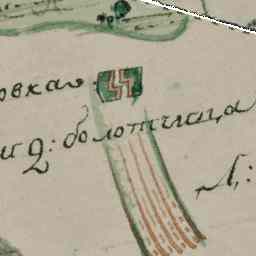 овкая
и 2: болотчица
Л: